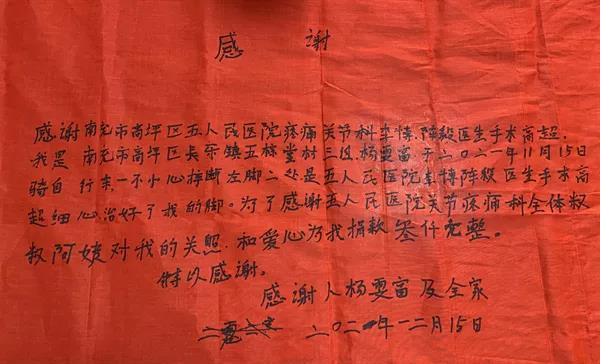 感谢
感谢南充市高坪区五人民医院疼痛关节科李博,陈毅医生手术高超,
我是 南充市高坪区长乐镇五栋堂村三组杨雯富于二〇二一年11月15日
骑自行车,一不小心摔断左脚二处是五人民医院李博陈毅医生手术高
超细心治好了我的脚。为了感谢五人民医院关节疼痛科全体叔
叔阿姨对我的关照,和爱心为我捐款叁仟元整。
特以感谢。
感谢人杨雯富及全家
二〇二一年一二月15日